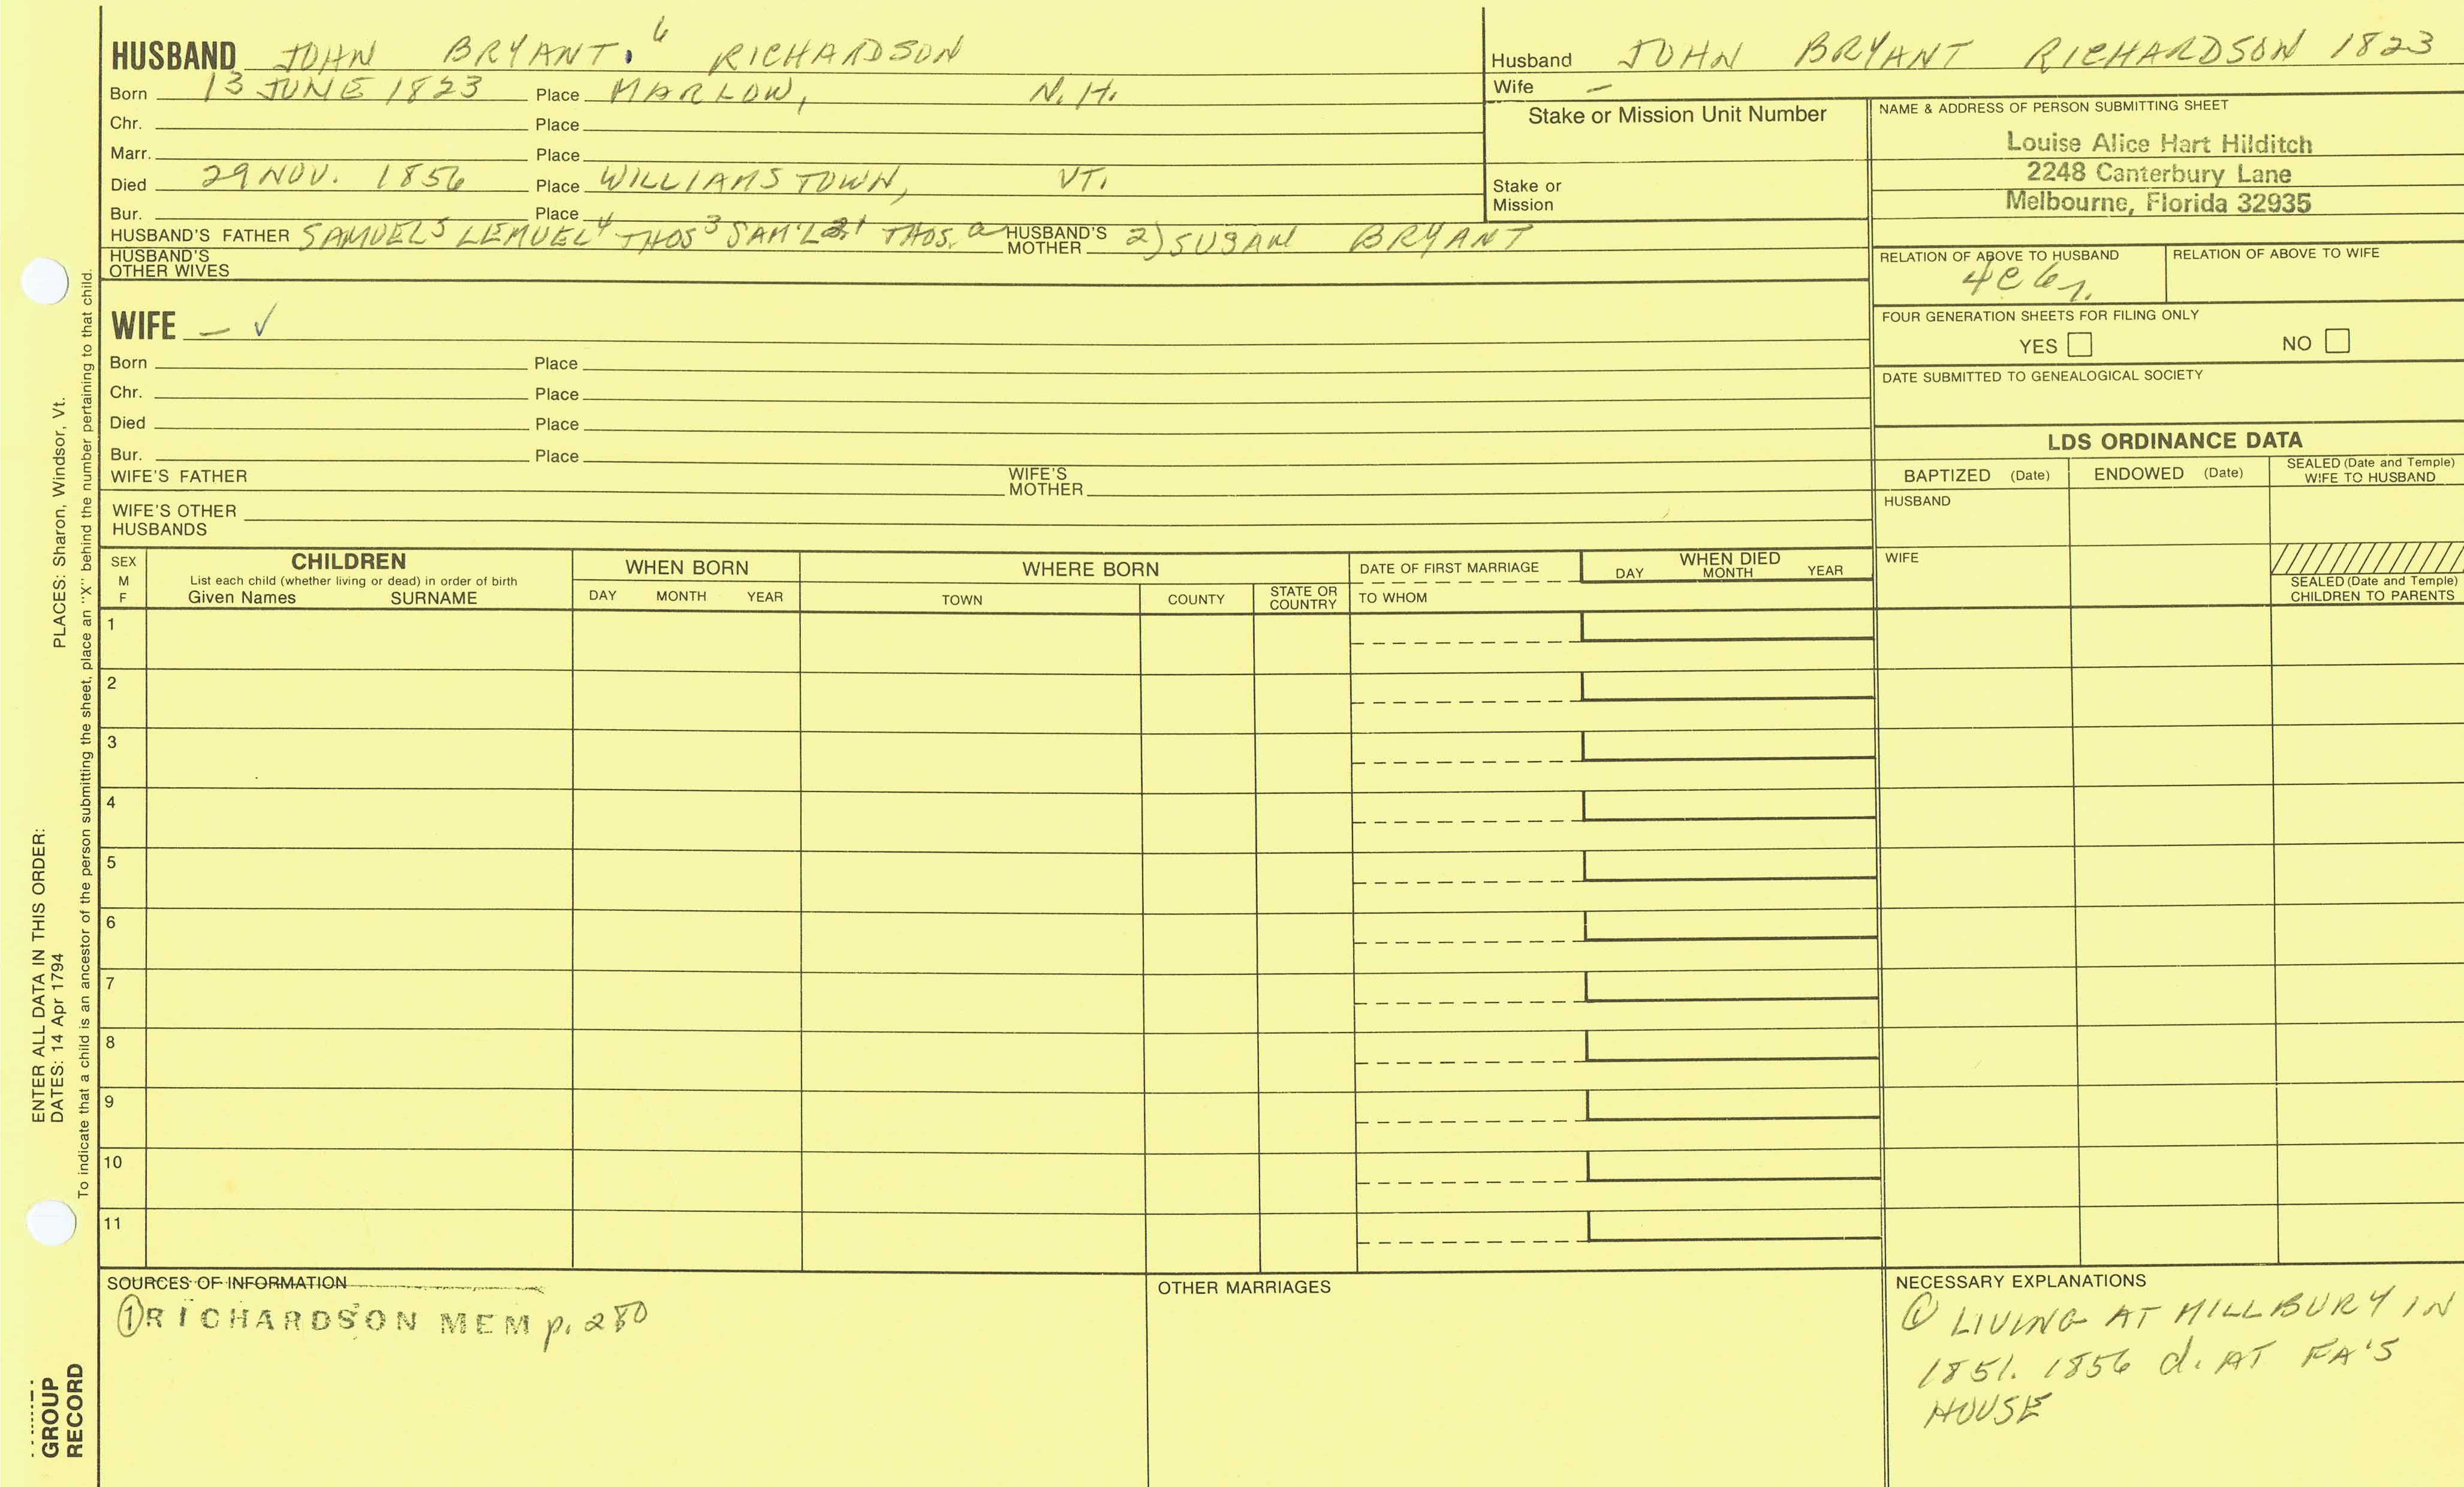 HUSBAND JOHN BRYANT. 6 RICHARDSON
Born 13 JUNE 1823 Place MARLOW, N.H.
Chr. Place
Marr. Place
Died 29 NOV. 1856 Place WILLIAMSTOWN, VT.
Bur. Place
HUSBAND'S FATHER SAMUEL5 LEMUEL4 THOS3 SAM'L THOS. HUSBAND'S MOTHER 2) SUSAN BRYANT
HUSBAND'S OTHER WIVES
Husband JOHN BRYANT RICHARDSON 1823
Wife –
Stake or Mission Unit Number
Stake or Mission
NAME & ADDRESS OF PERSON SUBMITTING SHEET
Louise Alice Hart Hilditch
2248 Canterbury Lane
Melbourne, Florida 32935
RELATION OF ABOVE TO HUSBAND RELATION OF ABOVE TO WIFE
4C 6r.
FOUR GENERATION SHEETS FOR FILING ONLY
YES NO
DATE SUBMITTED TO GENEALOGICAL SOCIETY
WIFE – ✓
Born Place
Chr. Place
Died Place
Bur. Place
WIFE'S FATHER WIFE'S MOTHER
WIFE'S OTHER HUSBANDS
LDS ORDINANCE DATA
BAPTIZED (Date) ENDOWED (Date) SEALED (Date and Temple) WIFE TO HUSBAND
HUSBAND
WIFE
SEALED (Date and Temple) CHILDREN TO PARENTS
SEX M F
CHILDREN
List each child (whether living or dead) in order of birth
Given Names SURNAME
WHEN BORN
DAY MONTH YEAR
WHERE BORN
TOWN COUNTY STATE OR COUNTRY
DATE OF FIRST MARRIAGE
TO WHOM
WHEN DIED
DAY MONTH YEAR
1
2
3
4
5
6
7
8
9
10
11
SOURCES OF INFORMATION
① RICHARDSON MEM p. 280
OTHER MARRIAGES
NECESSARY EXPLANATIONS
① LIVING AT MILLBURY IN
1851. 1856 d. AT FA'S
HOUSE
ENTER ALL DATA IN THIS ORDER:
DATES: 14 Apr 1794 PLACES: Sharon, Windsor, Vt.
To indicate that a child is an ancestor of the person submitting the sheet, place an "X" behind the number pertaining to that child.
GROUP
RECORD